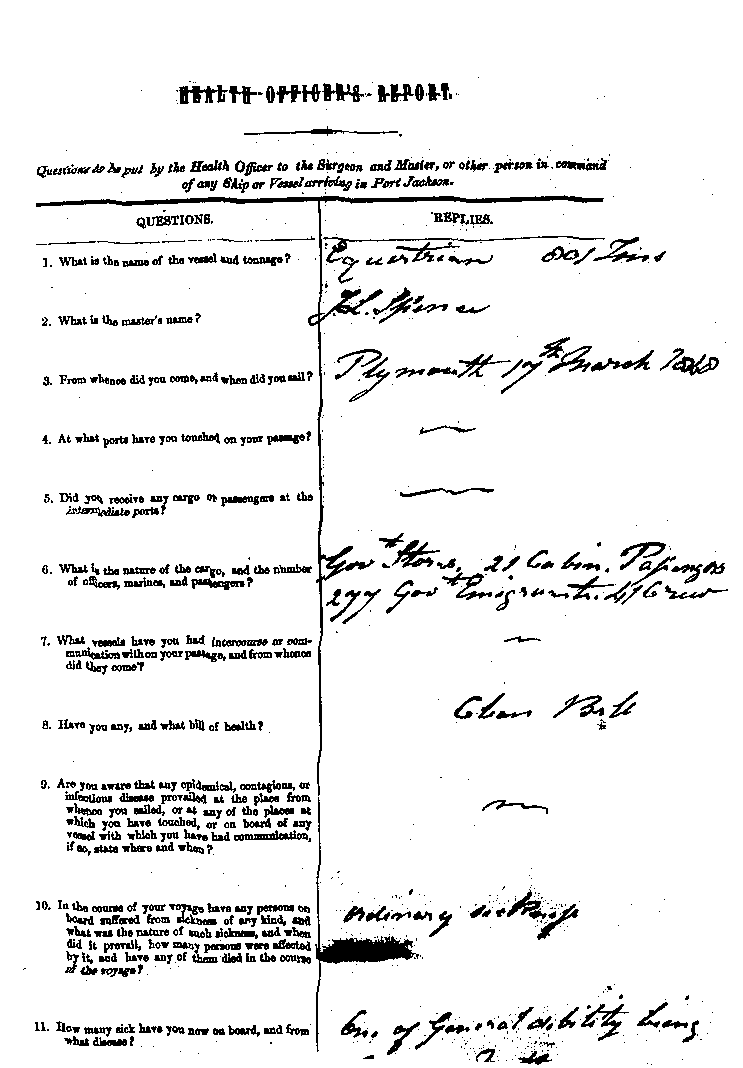 HEALTH OFFICER'S REPORT.
Questions to be put by the Health Officer to the Surgeon and Master, or other person in command
of any Ship or Vessel arriving in Port Jackson.
QUESTIONS.
REPLIES.
1. What is the name of the vessel and tonnage?
Equestrian 801 Tons
2. What is the master's name?
Spence
3. From whence did you come, and when did you sail?
Plymouth 17th March
4. At what ports have you touched on your passage?
5. Did you receive any cargo or passengers at the
intermediate ports?
6. What is the nature of the cargo, and the number
of officers, marines, and passengers?
Govt Stores, 21 Cabin Passengers
277 Govt Emigrants. 41 Crew
7. What vessels have you had intercourse or com-
munication with on your passage, and from whence
did they come?
8. Have you any, and what bill of health?
Clean Bill
9. Are you aware that any epidemical, contagious, or
infectious disease prevailed at the place from
whence you sailed, or at any of the places at
which you have touched, or on board of any
vessel with which you have had communication,
if so, state where and when?
10. In the course of your voyage have any persons on
board suffered from sickness of any kind, and
what was the nature of such sickness, and when
did it prevail, how many persons were affected
by it, and have any of them died in the course
of the voyage?
ordinary sickness
11. How many sick have you now on board, and from
what disease?
One of General debility being